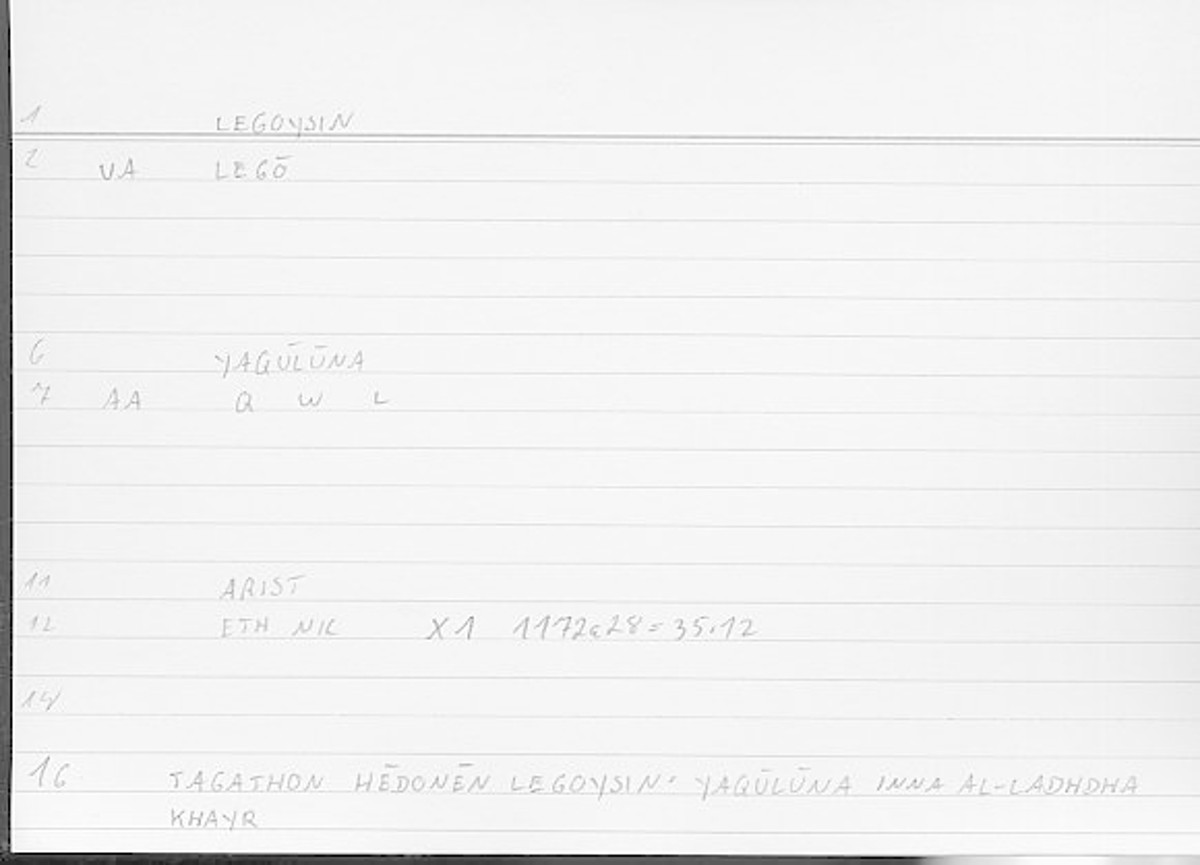 1 LEGOYSIN
2 VA LEGŌ
6 YAQŪLŪNA
7 AA Q W L
11 ARIST
12 ETH NIC X1 1172a28=35.12
14
16 TAGATHON HĒDONĒN LEGOYSIN· YAQŪLŪNA INNA AL-LADHDHA
KHAYR